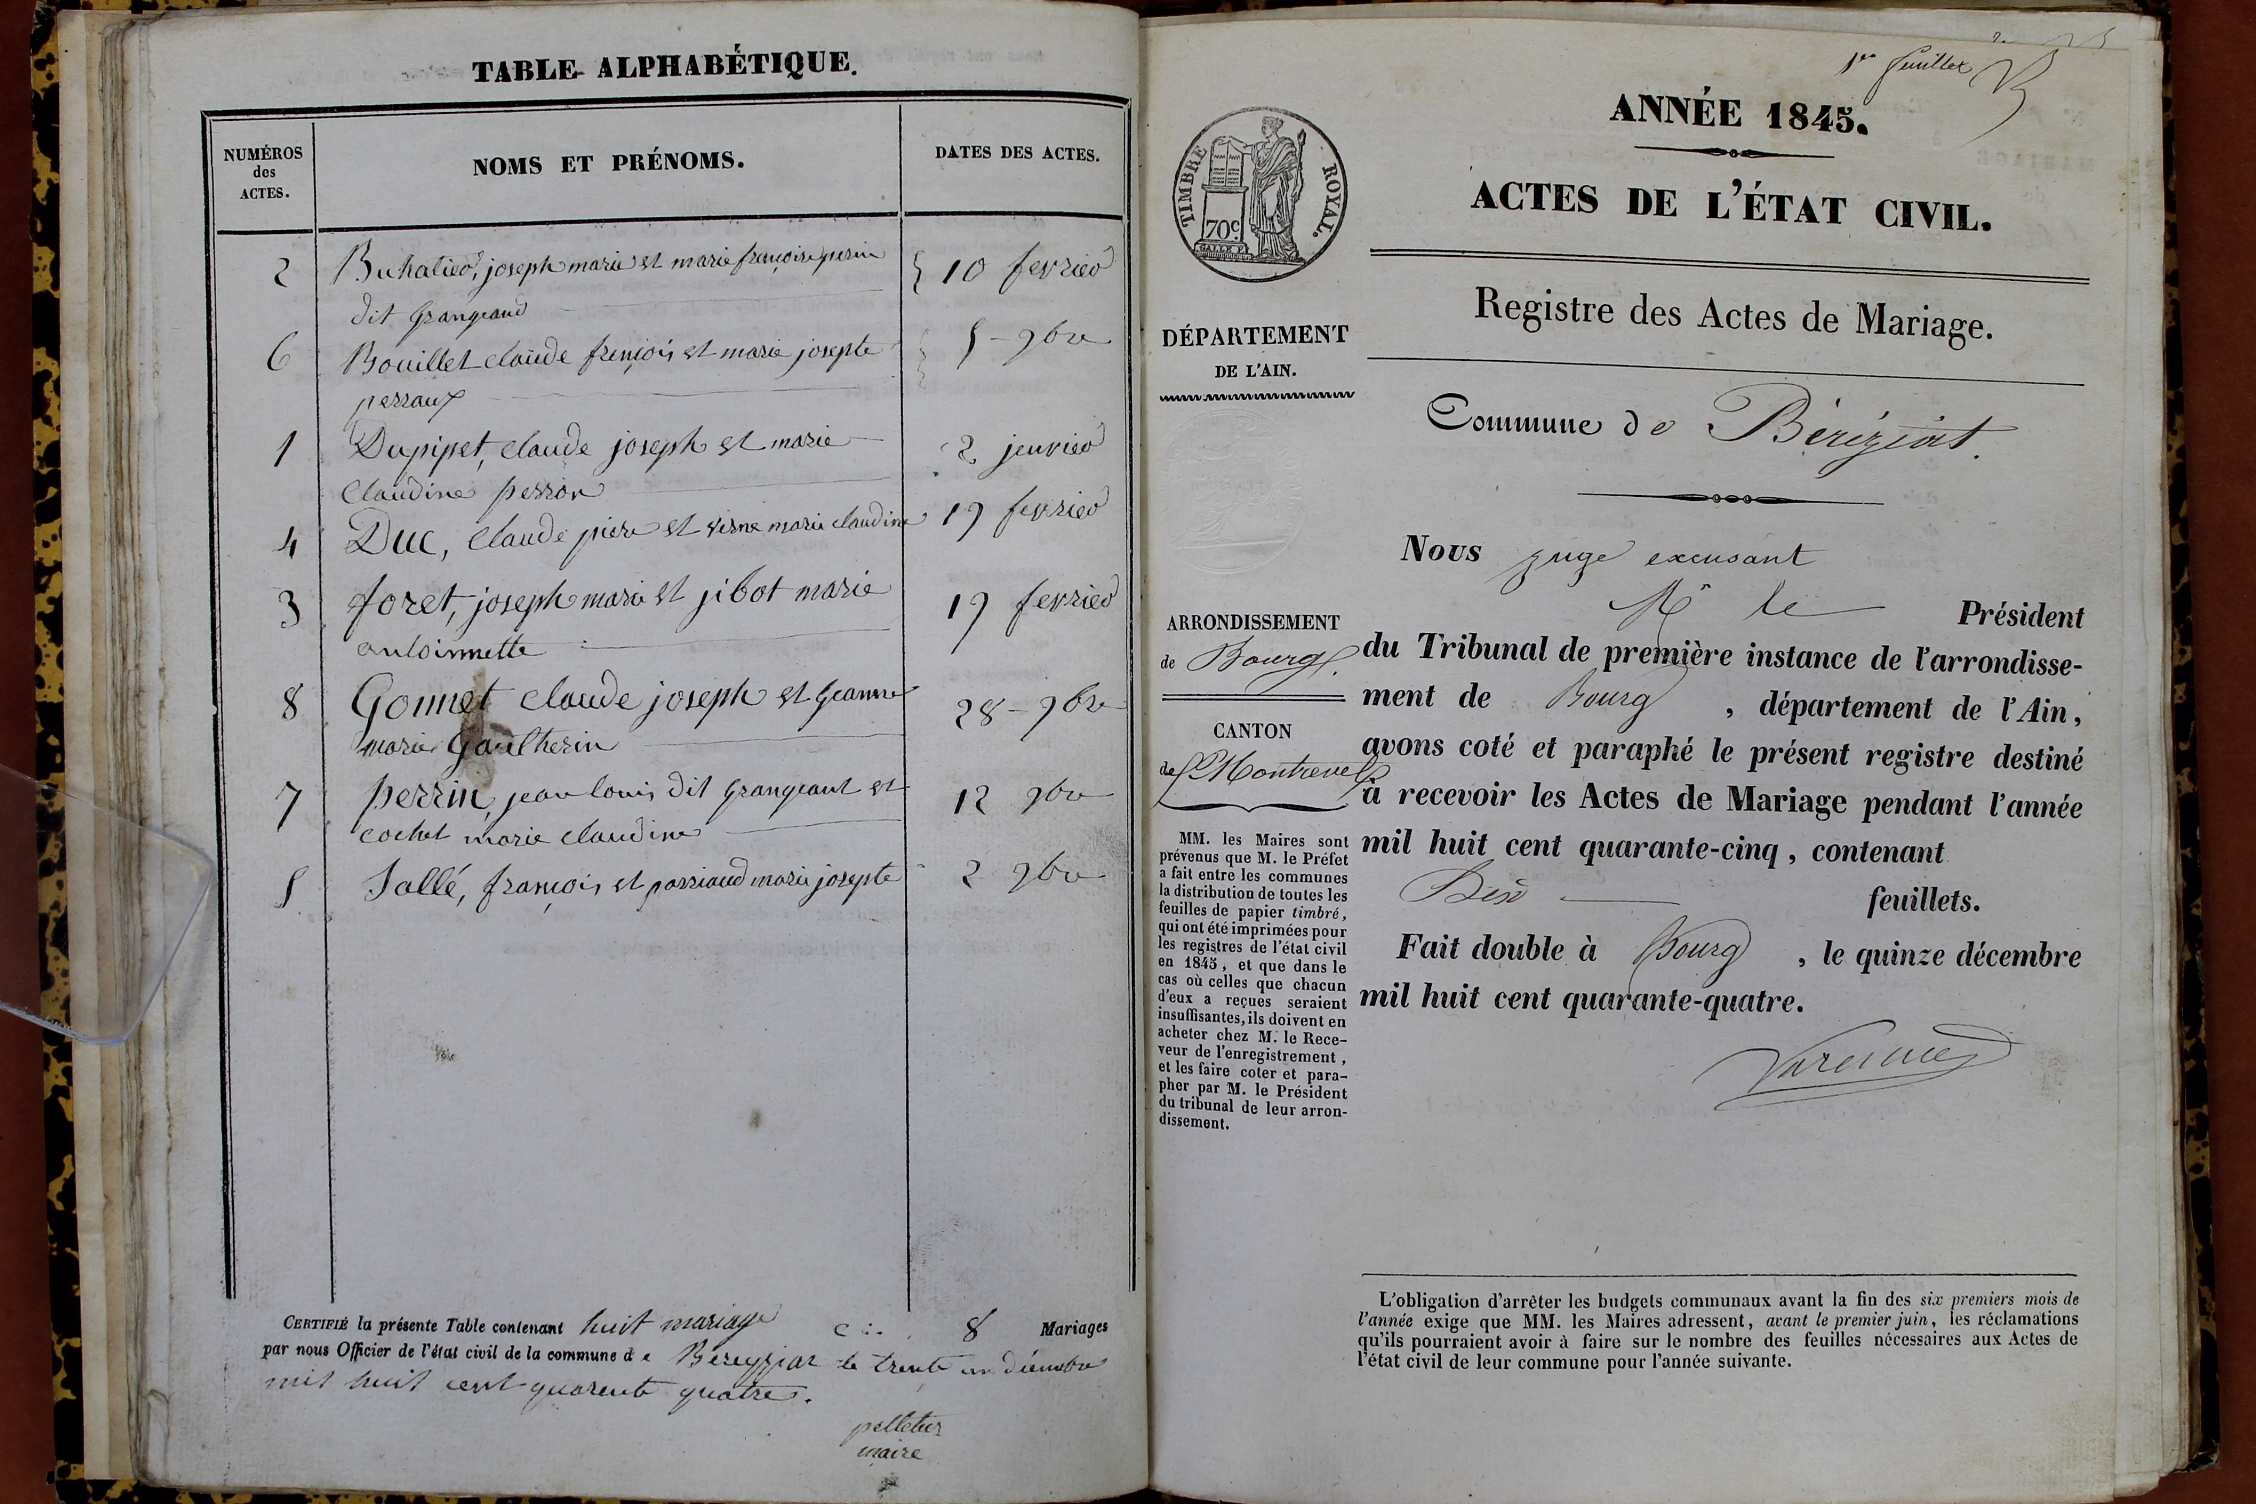 TABLE ALPHABÉTIQUE.
NUMÉROS
des
ACTES.
NOMS ET PRÉNOMS.
DATES DES ACTES.
2 Buhatier, joseph marie et marie françoise perin 10 fevrier
dit grangeaud
6 Bouillet claude françois et marie josepte 5 - 9bre
perraux
1 Dupipet, claude joseph et marie 2 jenvier
Claudine perron
4 Duc, claude piere et verne marie claudine 19 fevrier
3 foret, joseph marie et jibot marie 19 fevrier
antoinnette
8 Gonnet claude joseph et jeanne 28 - 9bre
marie Gaulherin
7 perrin, jean louis dit grangeant et 12 9bre
cochet marie claudine
5 Sallé, françois et parriaud marie josepte 2 9bre
CERTIFIÉ la présente Table contenant huit mariage 8 Mariages
par nous Officier de l'état civil de la commune de Bereyziat le trente un décembre
mil huit cent quarente quatre.
pelletier
maire
1er feuillet
ANNÉE 1845.
ACTES DE L'ÉTAT CIVIL.
Registre des Actes de Mariage.
TIMBRE ROYAL.
70c.
DÉPARTEMENT
DE L'AIN.
ARRONDISSEMENT
de Bourg.
CANTON
de Montrevel
MM. les Maires sont
prévenus que M. le Préfet
a fait entre les communes
la distribution de toutes les
feuilles de papier timbré,
qui ont été imprimées pour
les registres de l'état civil
en 1845, et que dans le
cas où celles que chacun
d'eux a reçues seraient
insuffisantes, ils doivent en
acheter chez M. le Rece-
veur de l'enregistrement,
et les faire coter et para-
pher par M. le Président
du tribunal de leur arron-
dissement.
Commune de Béréziat.
Nous juge excusant
Mr le Président
du Tribunal de première instance de l'arrondisse-
ment de Bourg, département de l'Ain,
avons coté et paraphé le présent registre destiné
à recevoir les Actes de Mariage pendant l'année
mil huit cent quarante-cinq, contenant
Dix feuillets.
Fait double à Bourg, le quinze décembre
mil huit cent quarante-quatre.
L'obligation d'arrêter les budgets communaux avant la fin des six premiers mois de
l'année exige que MM. les Maires adressent, avant le premier juin, les réclamations
qu'ils pourraient avoir à faire sur le nombre des feuilles nécessaires aux Actes de
l'état civil de leur commune pour l'année suivante.